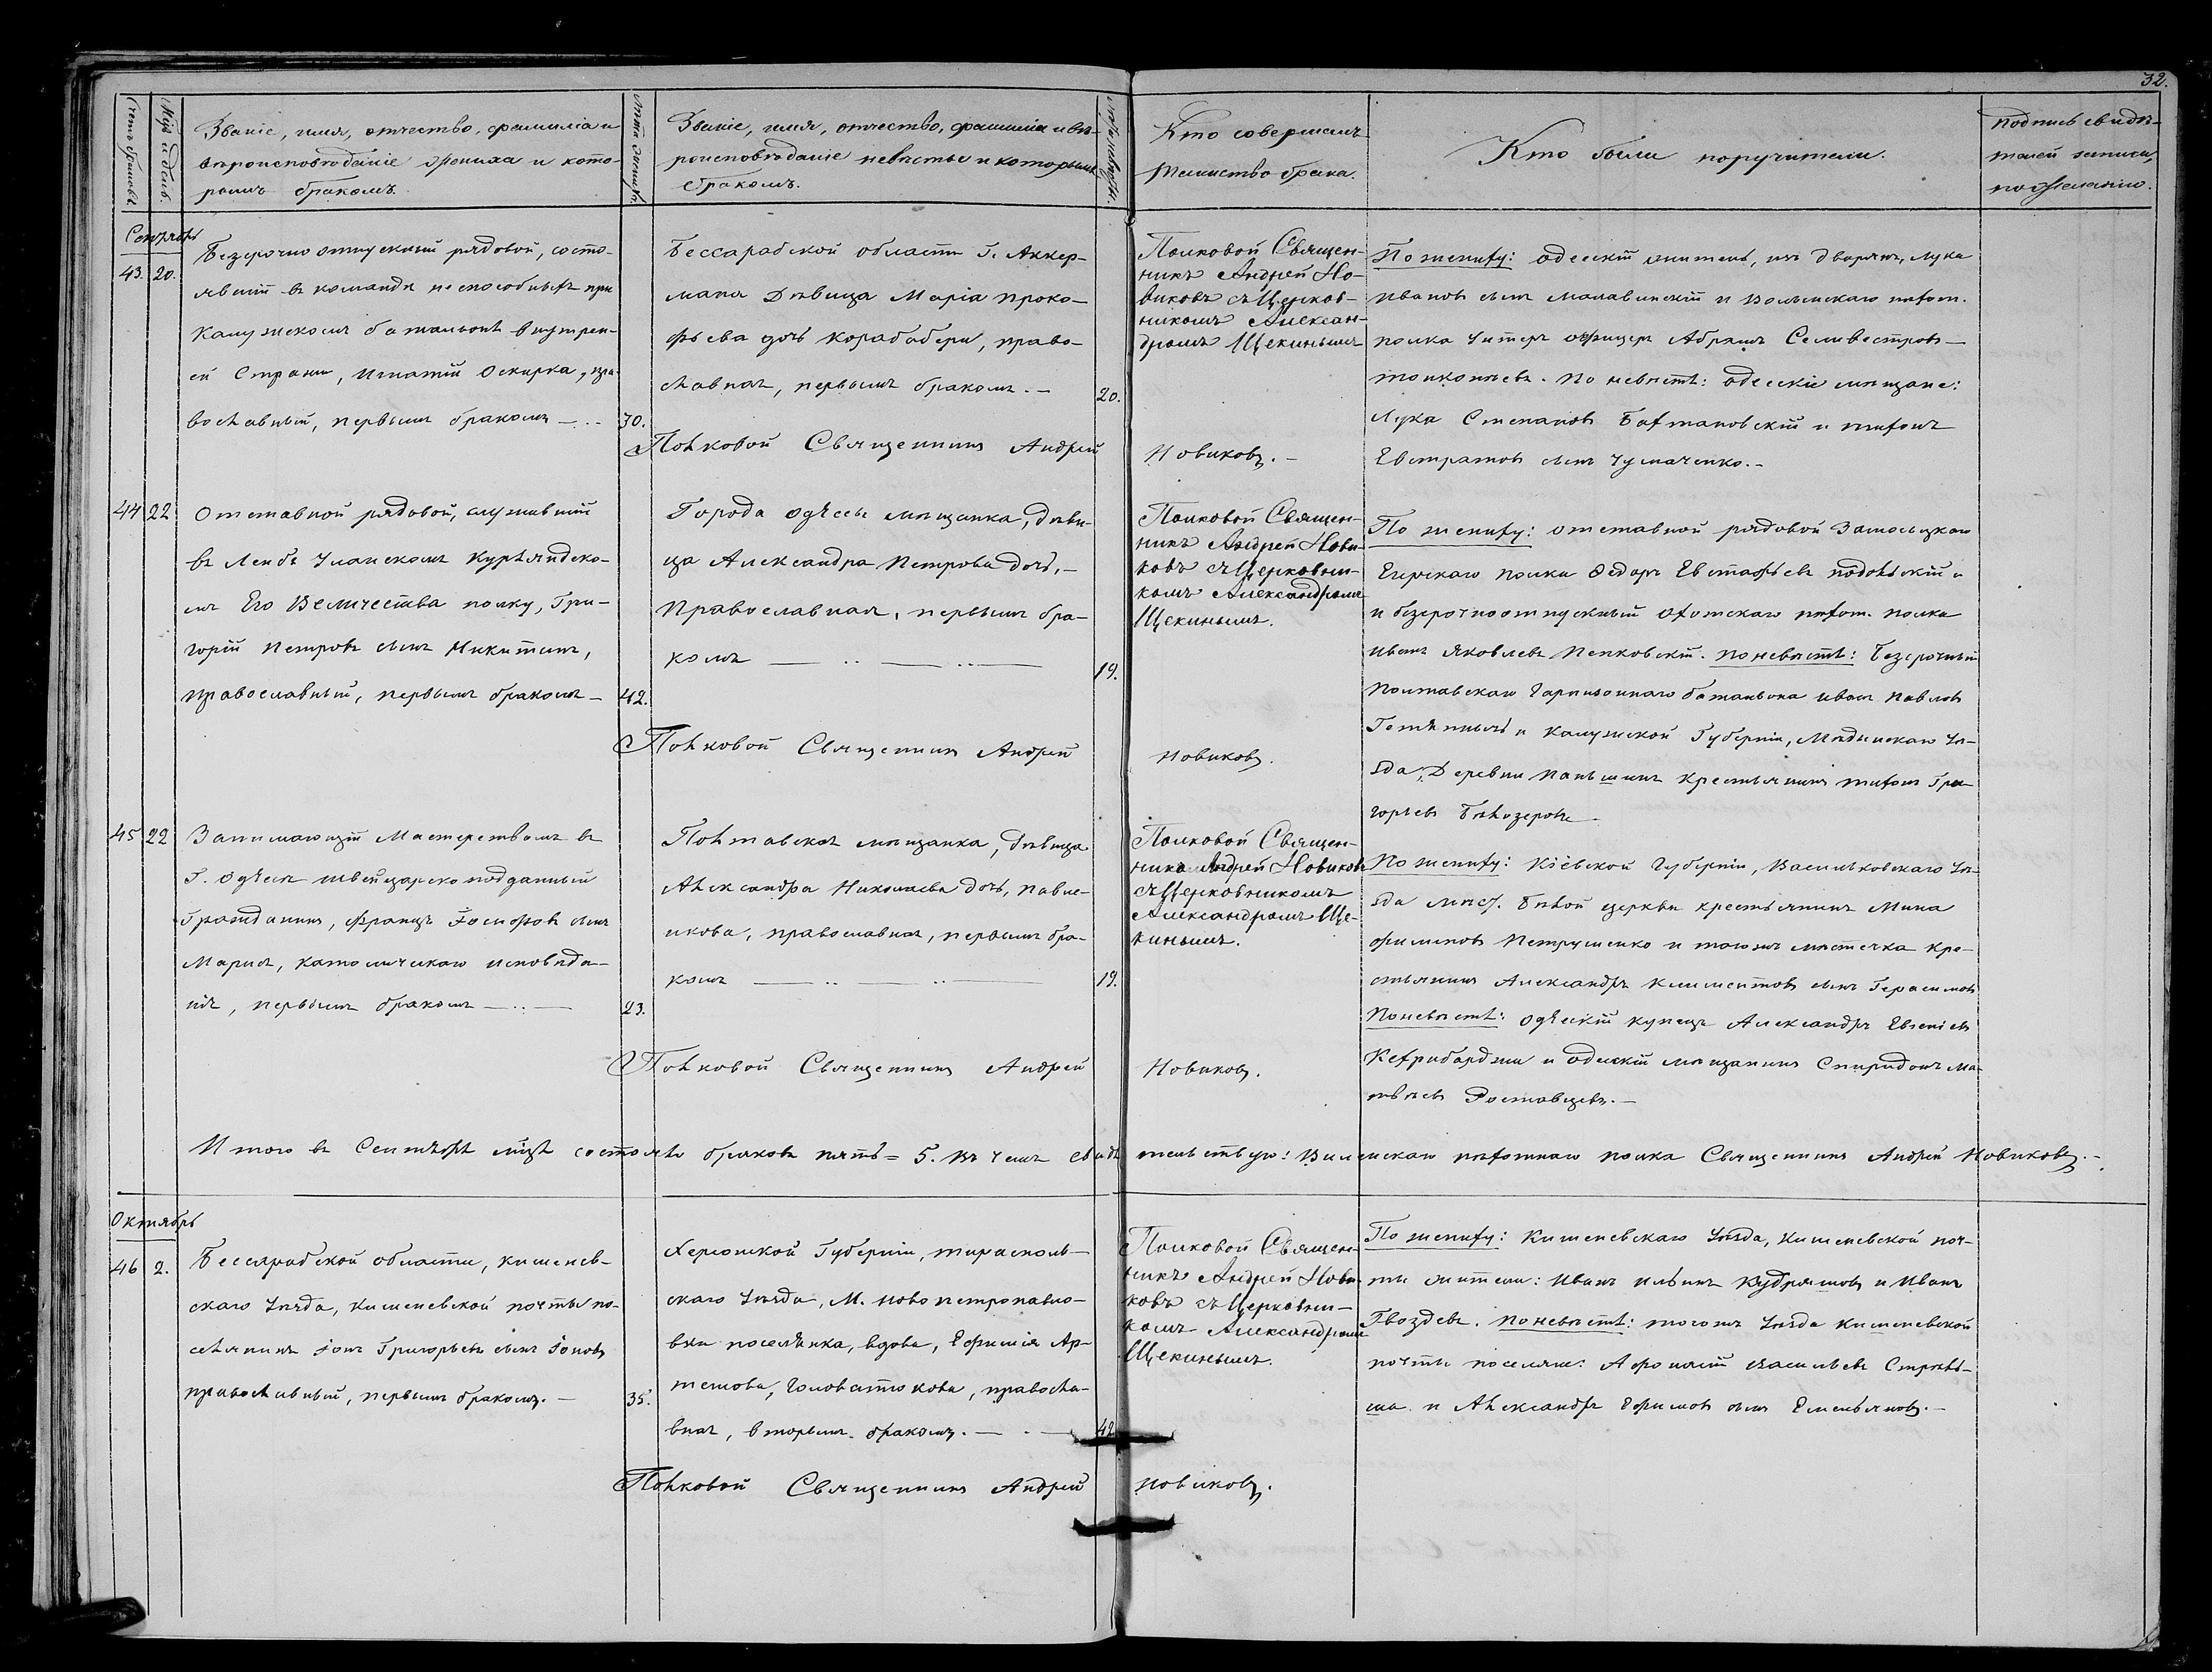 32.
Счетъ браковъ.
Мцъ и день.
Званіе, имя, отчество, фамилія и
вѣроисповѣданіе жениха и кото-
рымъ бракомъ.
Лѣта жениха.
Званіе, имя, отчество, фамилія и вѣ-
роисповѣданіе невѣсты и которымъ
бракомъ.
Лѣта невѣсты.
Кто совершалъ
таинство брака.
Кто были поручители.
Подпись свидѣ-
телей записи,
по желанію.
Сентябрь
43. 20.
Безсрочно отпускный рядовой, состо-
явшій въ командѣ неспособныхъ при
Калужскомъ баталіонѣ внутрен-
ей Стражи, Игнатій Оскирка, пра-
вославный, первымъ бракомъ
30.
Бессарабской области Г. Аккер-
мана Дѣвица Марія Проко-
фьева дочь Карабабери, право-
славная, первымъ бракомъ.
20.
Полковой Священникъ Андрей Новиковъ.
Полковой Священ-
никъ Андрей Но-
виковъ съ Церков-
никомъ Алексан-
дромъ Щекинымъ
По жениху: одесскій житель, изъ дворянъ, Лука
Ивановъ сынъ Малавинскій и Волынскаго пѣхот.
полка Унтеръ офицеръ Абрамъ Селивестровъ
Толкачевъ. По невѣстѣ: одесскіе мѣщане:
Лука Степановъ Бахтановскій и Тихонъ
Евстратовъ сынъ Чумаченко.
44 22
Отставной рядовой, служившій
въ Лейбъ Уланскомъ Курляндско-
мъ Его Величества полку, Гри-
горій Петровъ сынъ Никитинъ,
православный, первымъ бракомъ
42.
Города Одессы мѣщанка, дѣви-
ца Александра Петрова дочь,
Православная, первымъ бра-
комъ
19.
Полковой Священникъ Андрей Новиковъ.
Полковой Священ-
никъ Андрей Нови-
ковъ съ Церковни-
комъ Александромъ
Щекинымъ.
По жениху: отставной рядовой Замосцкаго
Егерскаго полка Ѳедоръ Евстафьевъ Подольскій и
и безсрочноотпускный Охотскаго пѣхот. полка
Иванъ Яковлевъ Пепковскій. По невѣстѣ: Безсрочный
Полтавскаго Гарнизоннаго баталіона Иванъ Павловъ
и Калужской Губерніи, Мѣдынскаго Уѣ-
зда, Деревни Папышинъ Крестьянинъ Тихонъ Гри-
горьевъ Бѣлозеровъ.
45 22
Занимающій Мастерствомъ въ
Г. Одессѣ швейцарско подданный
Гражданинъ, Францъ Іосифовъ сынъ
Марія, католическаго исповѣда-
нія, первымъ бракомъ
23.
Полтавская мѣщанка, дѣвица
Александра Николаева дочь, Павле-
нкова, православная, первымъ бра-
комъ
19.
Полковой Священникъ Андрей Новиковъ.
Полковой Священ-
никъ Андрей Новиковъ
съ Церковникомъ
Александромъ Ще-
кинымъ.
По жениху: Кіевской Губерніи, Васильковскаго Уѣ-
зда мѣст. Бѣлой церкви крестьянинъ Мина
Филиповъ Петрушенко и тогожъ мѣстечка кре-
стьянинъ Александръ Климентовъ сынъ Герасимовъ
По невѣстѣ: Одесскій купецъ Александръ Евгеніевъ
Кехрибарджи и одесскій мѣщанинъ Спиридонъ Ма-
твѣевъ Ростовцевъ.
Итого въ Сентябрѣ мцѣ состоялъ браковъ пять = 5. Въ чемъ свидѣтельствую: Виленскаго пѣхотнаго полка Священникъ Андрей Новиковъ.
Октябрь
46 2.
Бессарабской области, кишенев-
скаго Уѣзда, Кишеневской почты по-
селянинъ Іонъ Григорьевъ сынъ Іоновъ
православный, первымъ бракомъ.
35.
Херсонской Губерніи, тирасполь-
скаго Уѣзда, М. Ново петропавло-
вки поселянка, вдова, Ефимія Ар-
темова, Головатюкова, правосла-
вная, вторымъ бракомъ.
42
Полковой Священникъ Андрей Новиковъ.
Полковой Священ-
никъ Андрей Нови-
ковъ съ Церковни-
комъ Александромъ
Щекинымъ.
По жениху: Кишеневскаго Уѣзда, Кишеневской поч-
ты жители: Иванъ Ильинъ Кудряшовъ и Иванъ
Гвоздевъ. По невѣстѣ: тогожъ Уѣзда Кишеневской
почты поселяне: Афонасій Васильевъ Стрѣль-
ша и Александръ Ефимовъ сынъ Емельяновъ.